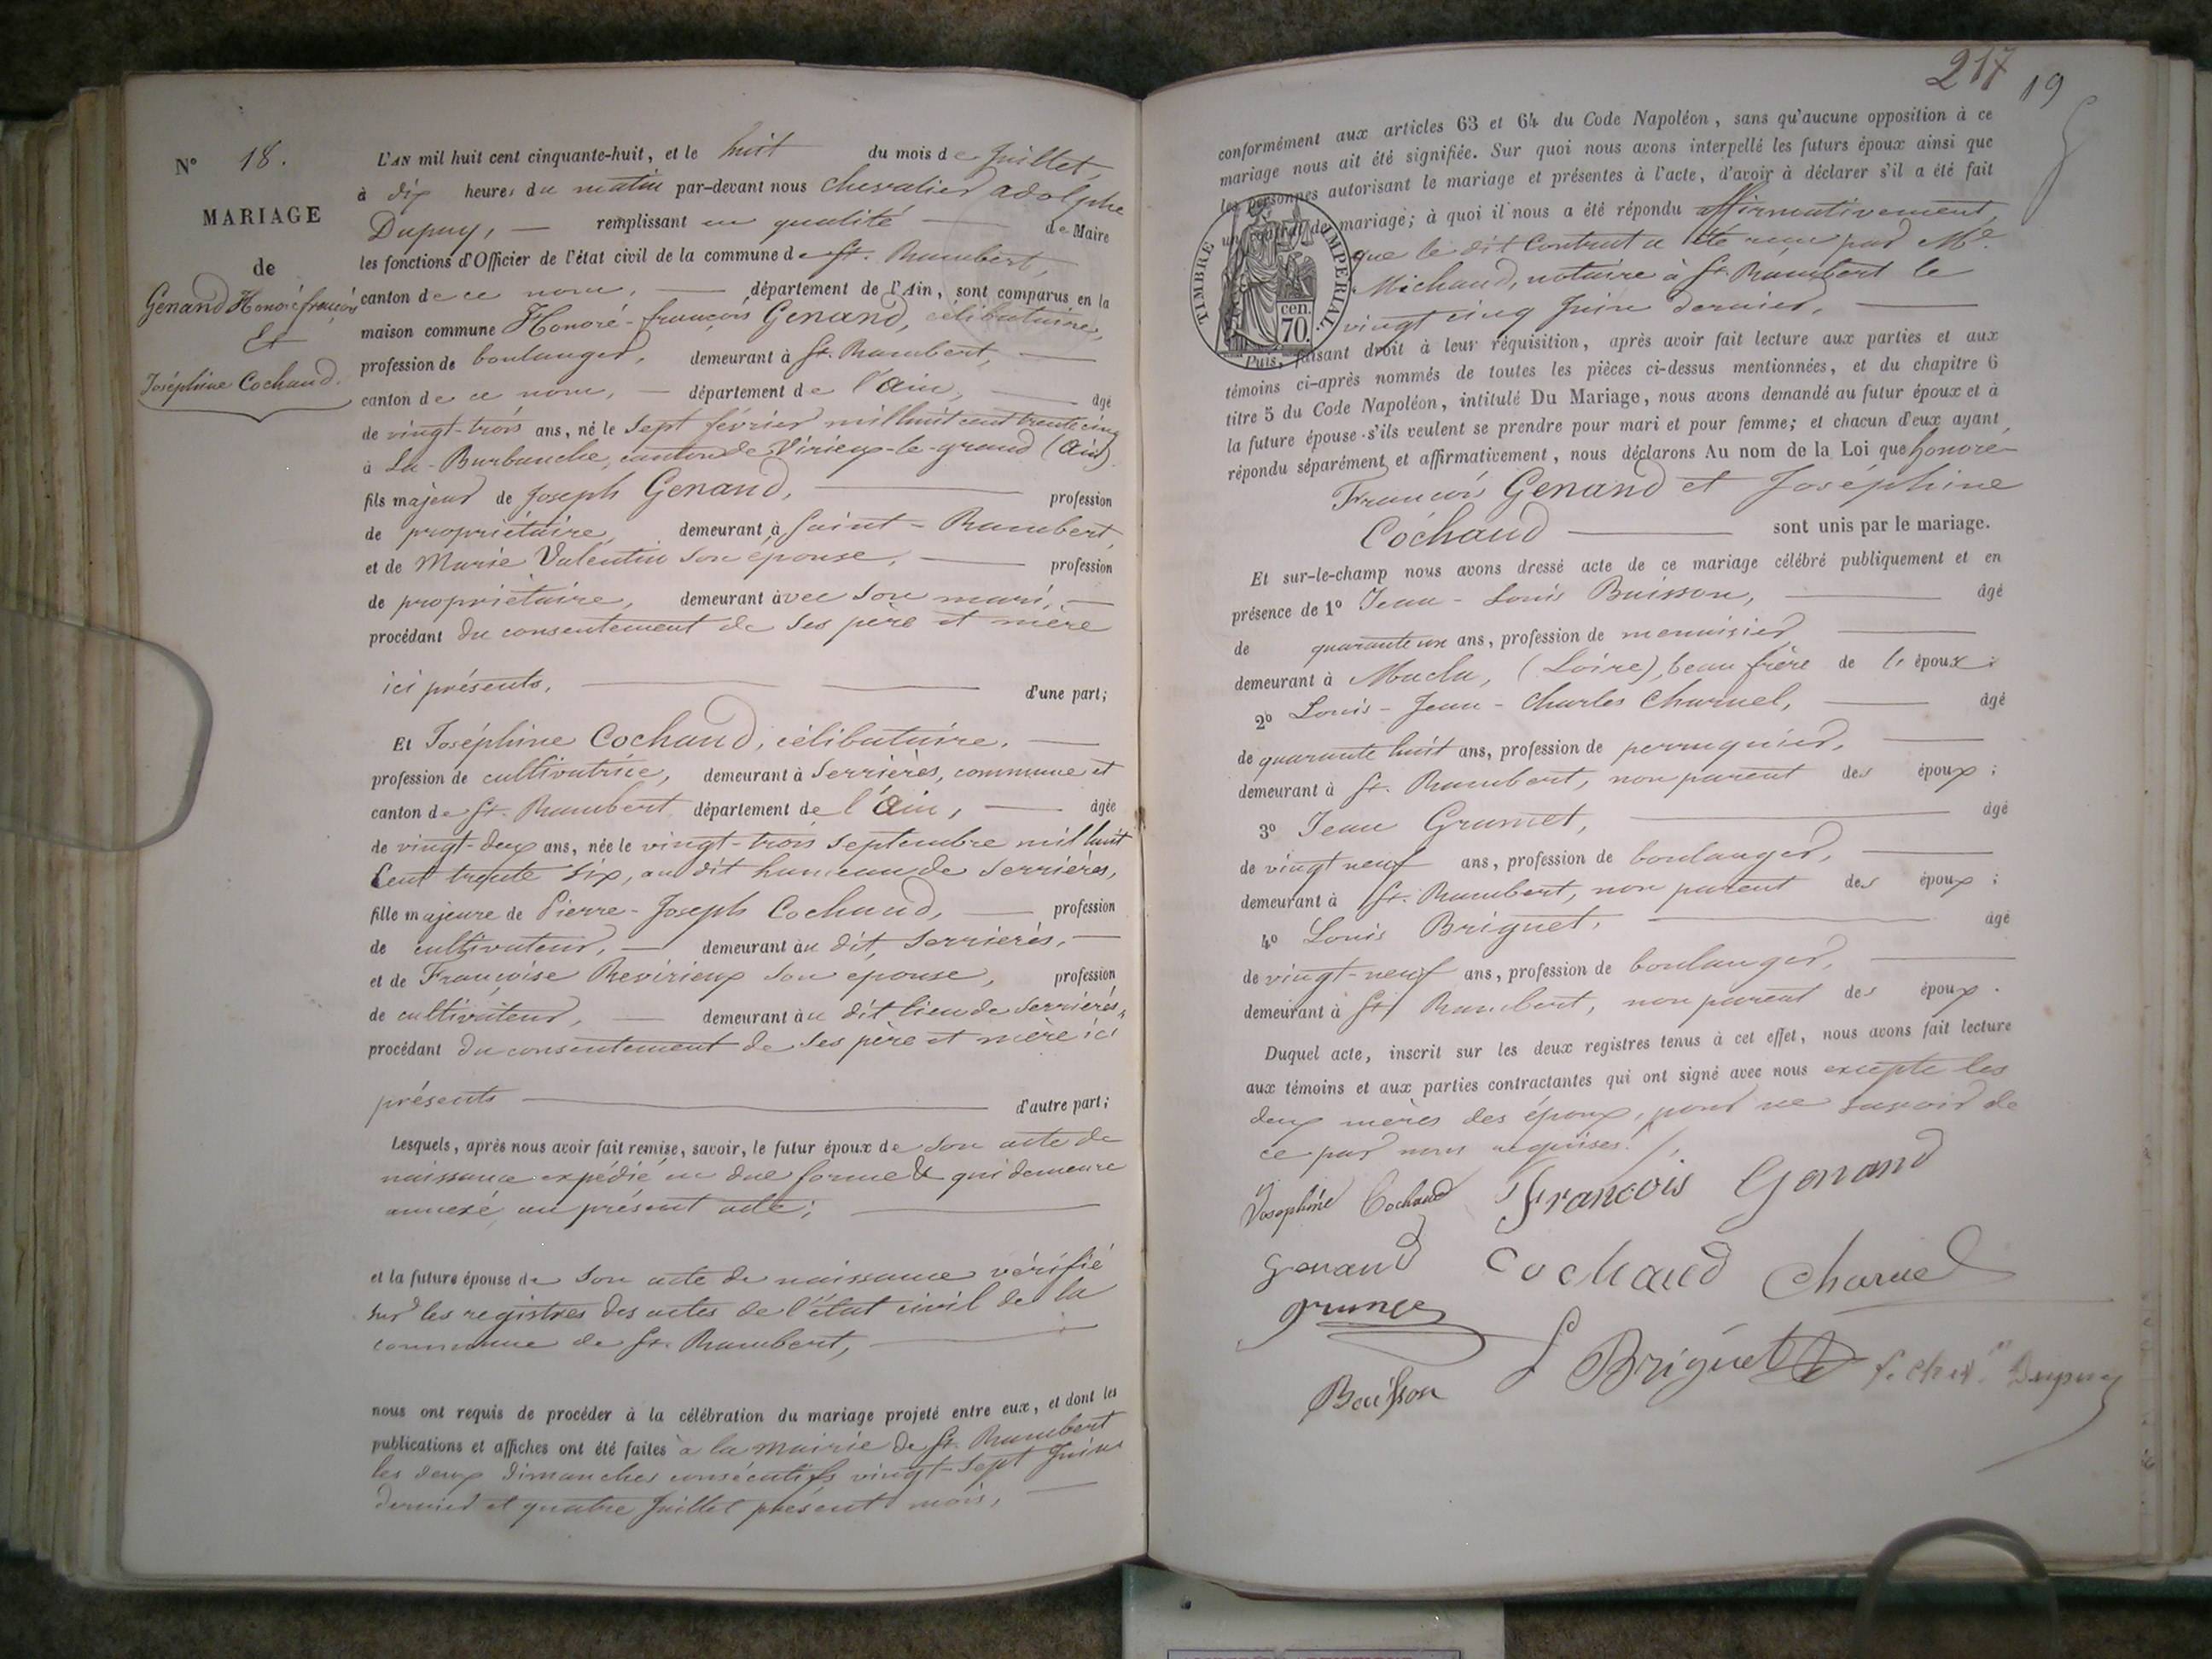 N° 18.
MARIAGE
de
Genand Honoré françois
Et
Joséphine Cochand.
L'AN mil huit cent cinquante-huit, et le huit du mois de Juillet,
à dix heures du matin par-devant nous chevalier adolphe
Dupuy, — remplissant en qualité — de Maire
les fonctions d'Officier de l'état civil de la commune de St. Rambert,
canton de ce nom, — département de l'Ain, sont comparus en la
maison commune Honoré-françois Genand, célibataire,
profession de boulanger, demeurant à St. Rambert, —
canton de ce nom, — département de l'ain, — âgé
de vingt-trois ans, né le sept février mil huit cent trente cinq
à La-Burbanche, canton de Virieux-le-grand (ain)
fils majeur de Joseph Genand, — profession
de propriétaire, demeurant à Saint-Rambert,
et de Marie Valentin son épouse, — profession
de propriétaire, demeurant avec son mari, —
procédant du consentement de ses père et mère
ici présents, — — d'une part;
Et Joséphine Cochand, célibataire, —
profession de cultivatrice, demeurant à Serrières, commune et
canton de St. Rambert département de l'ain, — âgée
de vingt-deux ans, née le vingt-trois septembre mil huit
Cent trente six, au dit hameau de Serrières,
fille majeure de Pierre-Joseph Cochand, — profession
de cultivateur, — demeurant au dit, Serrières, —
et de Françoise Revirieux son epouse, profession
de cultivateur, — demeurant au dit lieu de Serrières,
procédant du consentement de ses père et mère ici
présents — d'autre part;
Lesquels, après nous avoir fait remise, savoir, le futur époux de son acte de
naissance expédié en due forme & qui demeure
annexé au présent acte; —
et la future épouse de son acte de naissance vérifié
sur les registres des actes de l'état civil de la
commune de St. Rambert, —
nous ont requis de procéder à la célébration du mariage projeté entre eux, et dont les
publications et affiches ont été faites à la mairie de St. Rambert
les deux dimanches consécutifs vingt-sept Juin
dernier et quatre Juillet présent mois, —
217 19
conformément aux articles 63 et 64 du Code Napoléon, sans qu'aucune opposition à ce
mariage nous ait été signifiée. Sur quoi nous avons interpellé les futurs époux ainsi que
les personnes autorisant le mariage et présentes à l'acte, d'avoir à déclarer s'il a été fait
un de mariage; à quoi il nous a été répondu affirmativement,
que le dit Contrat a été reçu par Me.
Michaud, notaire à St. Rambert le
vingt cinq Juin dernier, —
TIMBRE IMPÉRIAL.
cen.
70.
Puis, faisant droit à leur réquisition, après avoir fait lecture aux parties et aux
témoins ci-après nommés de toutes les pièces ci-dessus mentionnées, et du chapitre 6
titre 5 du Code Napoléon, intitulé Du Mariage, nous avons demandé au futur époux et à
la future épouse s'ils veulent se prendre pour mari et pour femme; et chacun d'eux ayant
répondu séparément et affirmativement, nous déclarons Au nom de la Loi que honoré
François Genand et Joséphine
Cochand — sont unis par le mariage.
Et sur-le-champ nous avons dressé acte de ce mariage célébré publiquement et en
présence de 1° Jean-Louis Buisson, — âgé
de quarante un ans, profession de menuisier —
demeurant à Macla, (Loire), beau frère de l'époux;
2° Louis-Jean-Charles Charvel, — âgé
de quarante huit ans, profession de perruquier, —
demeurant à St. Rambert, non parent des époux;
3° Jean Grumet, — âgé
de vingt neuf ans, profession de boulanger, —
demeurant à St. Rambert, non parent des époux;
4° Louis Briguet, — âgé
de vingt-neuf ans, profession de boulanger, —
demeurant à St. Rambert, non parent des époux.
Duquel acte, inscrit sur les deux registres tenus à cet effet, nous avons fait lecture
aux témoins et aux parties contractantes qui ont signé avec nous excepté les
deux mères des époux, pour ne savoir de
ce par nous requises.
Joséphine Cochand François Genand
Genand Cochaud Charvel
L Briguet Dupuy
Buisson